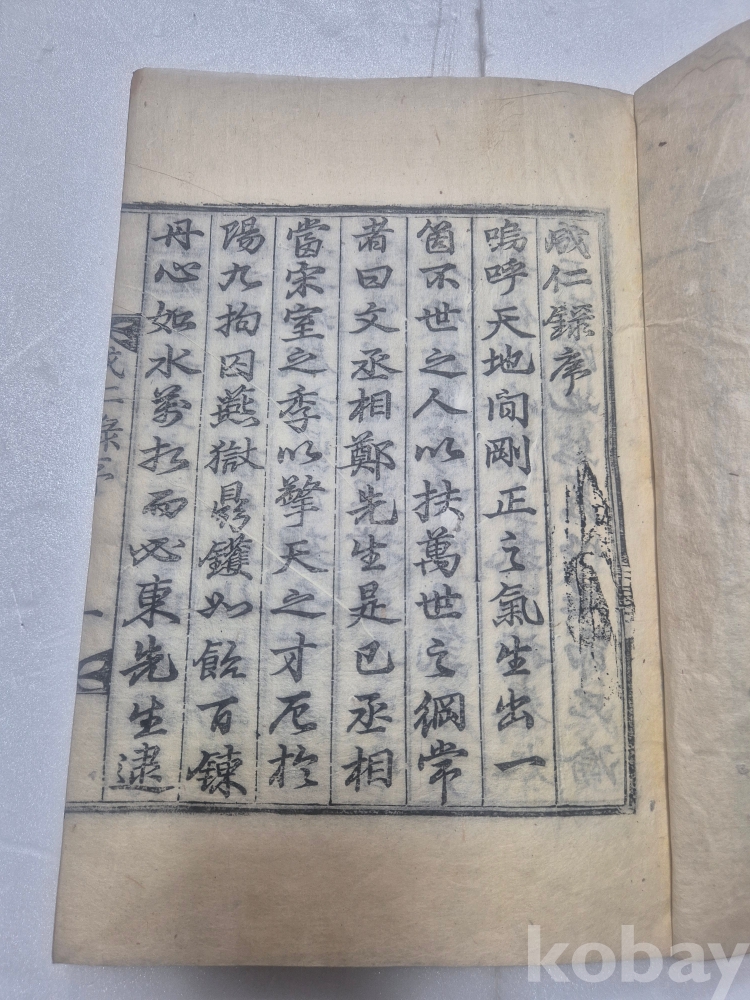 成仁錄序
嗚呼天地间剛正之氣生出一
箇不世之人以扶萬世之綱常
者曰文丞相鄭先生是已丞相
當宋室之季以擎天之才厄於
陽九拘囚燕獄鼎鑊如飴百鍊
丹心如水萬折而必東先生逮
成仁錄序
一
kobay